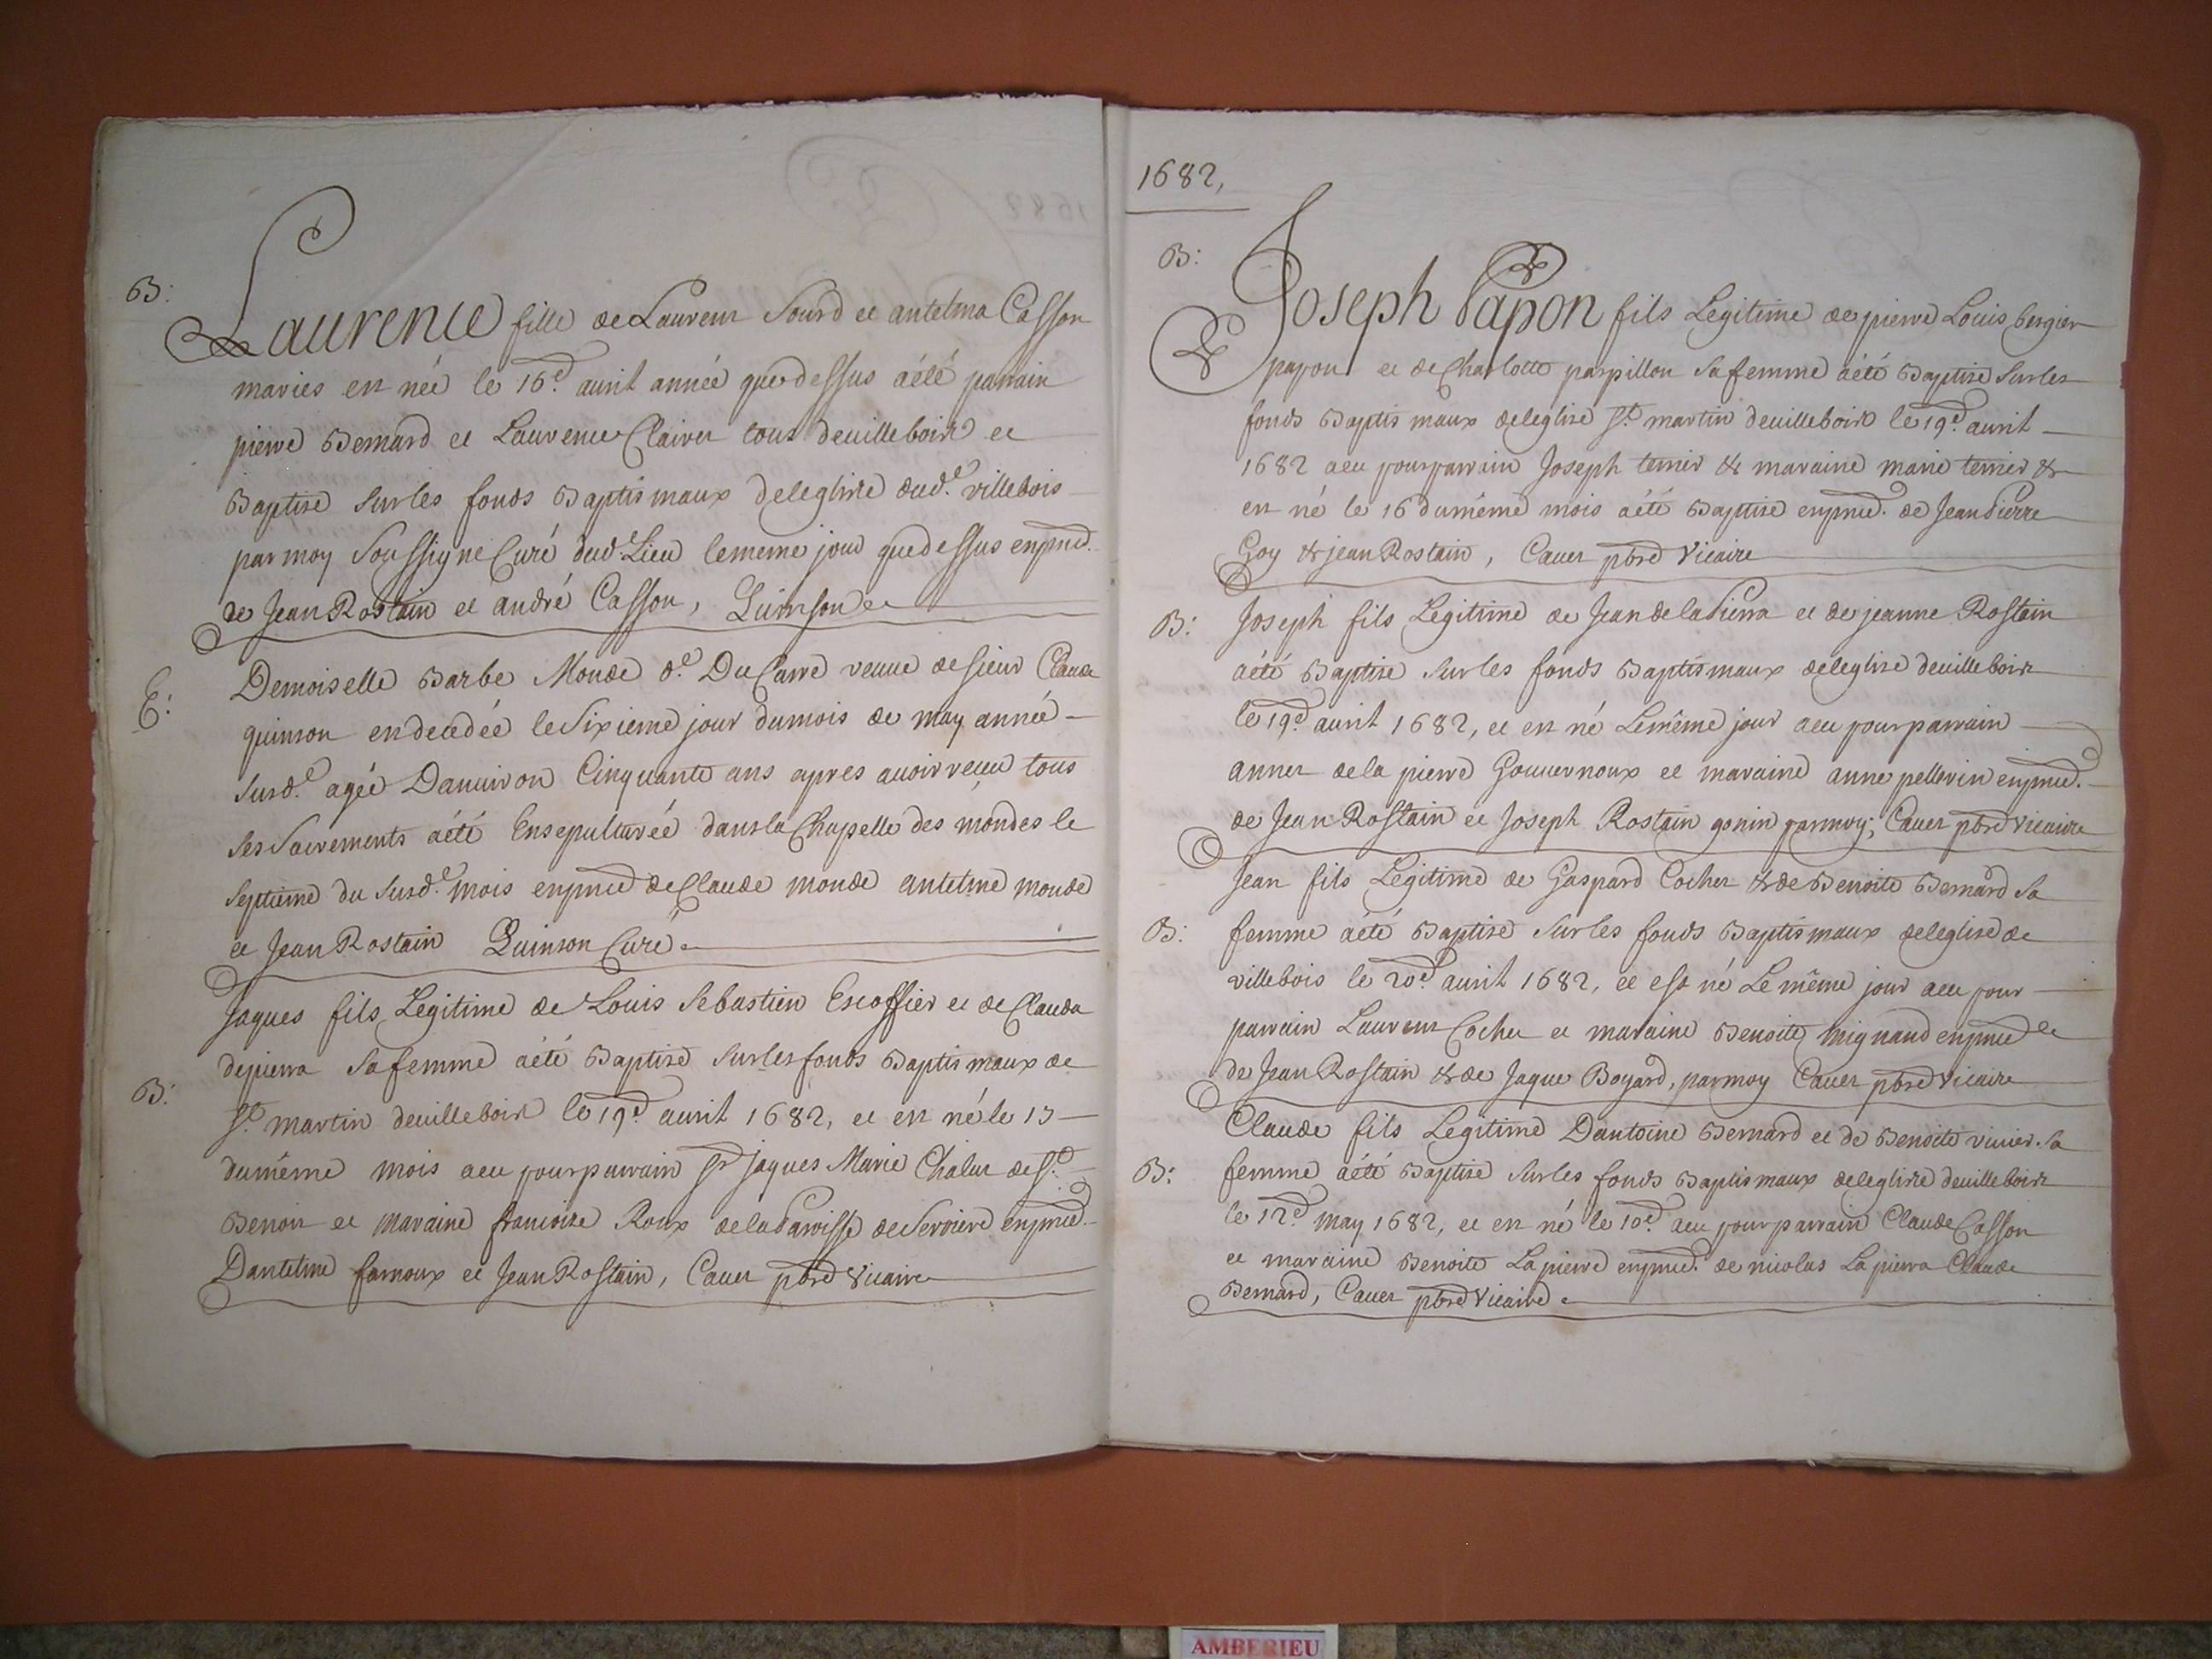 B:
Laurence fille de Laurens Sourd et antelma Casson
mariés est née le 16e. avril année que dessus a été parrain
pierre Bernard et Laurence Clairet tous de villebois et
Baptisé sur les fonds Baptismaux de leglise dud.e villebois
par moy Soussigné Curé dud. Lieu le meme jour que dessus en pnce.
de Jean Rostain et andré Casson, Quinson
E:
Demoiselle Barbe Monde d.e Du Carre veuve de sieur Claude
quinson en decedée le Sixieme jour du mois de may année
susd.e agée Danviron Cinquante ans apres avoir receu tous
ses Sacrements a été Ensepulturée dans la Chapelle des mondes le
septieme du susd.e mois en pnce de Claude monde antelme monde
et Jean Rostain Quinson Curé
Jaques fils Legitime de Louis Sebastien Escoffier et de Clauda
depierra sa femme a été Baptisé sur les fonds Baptismaux de
B:
St. martin de villebois le 19e avril 1682, et est né le 13
du même mois a eu pour parrain sr Jaques Marie Chalut de St.
Benoit et maraine francoise Roux de la Paroisse de Serviere en pnce.
Dantelme famoux et Jean Rostain, Cauet pbre Vicaire
1682,
B:
Joseph Papon fils Legitime de pierre Louis bergier
papon et de Charlotte parpillon sa femme a été Baptisé sur les
fonds Baptismaux de leglise St. martin de villebois le 19e. avril
1682 a eu pour parrain Joseph terrier & maraine marie terrier &
est né le 16 du même mois a été Baptisé en pnce. de Jean Pierre
Goy & jean Rostain, Cauet pbre Vicaire
B:
Joseph fils Legitime de Jean de la Pierra et de jeanne Rostain
a été Baptisé sur les fonds Baptismaux de leglise de villebois
le 19e avril 1682, et est né Le même jour a eu pour parrain
annet de la pierre Gouvernoux et maraine anne pellerin en pnce.
de Jean Rostain et Joseph Rostain gonin par moy; Cauet pbre vicaire
Jean fils Legitime de Gaspard Cochet & de Benoite Bernard sa
B:
femme a été Baptisé sur les fonds Baptismaux de leglise de
villebois le 20e. avril 1682, et est né Le même jour a eu pour
parrain Laurent Cochet et maraine Benoite mignaud en pnce
de Jean Rostain & de Jaque Boyard, par moy Cauet pbre Vicaire
Claude fils Legitime Dantoine Bernard et de Benoite vivier sa
B:
femme a été Baptisé sur les fonds Baptismaux de leglise de villebois
le 12e. may 1682, et est né le 10e. a eu pour parrain Claude Casson
et maraine Benoite Lapierre en pnce. de nicolas Lapierra Claude
Bernard, Cauet pbre Vicaire
AMBERIEU